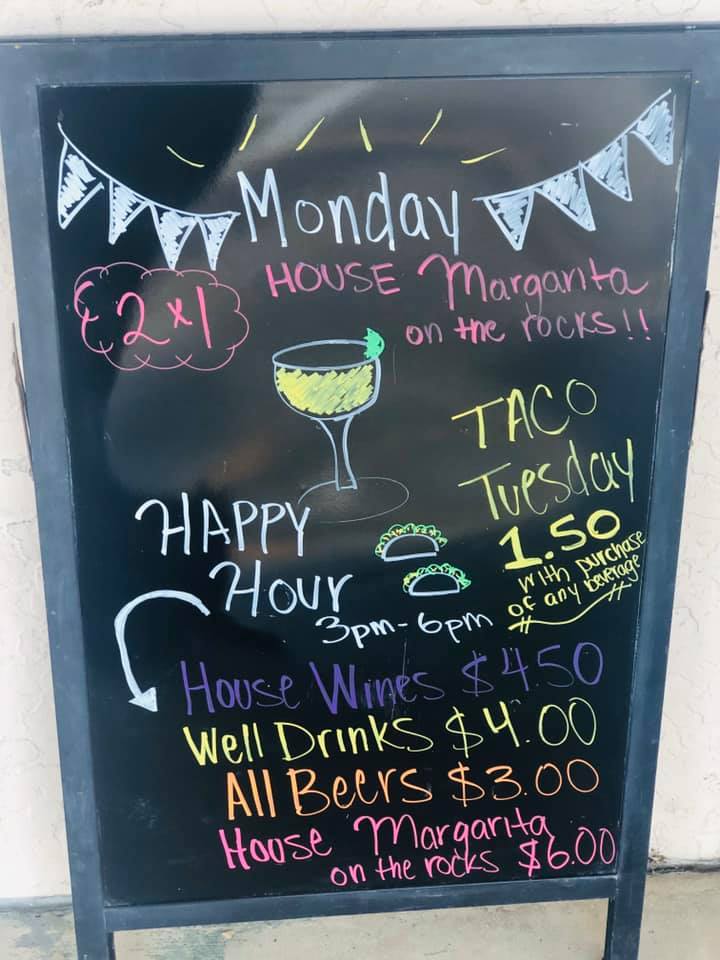 Monday
2x1
HOUSE Margarita
on the rocks!!
TACO
Tuesday
1.50
with purchase
of any beverage
HAPPY
Hour
3pm-6pm
House Wines $4.50
Well Drinks $4.00
All Beers $3.00
House Margarita
on the rocks $6.00